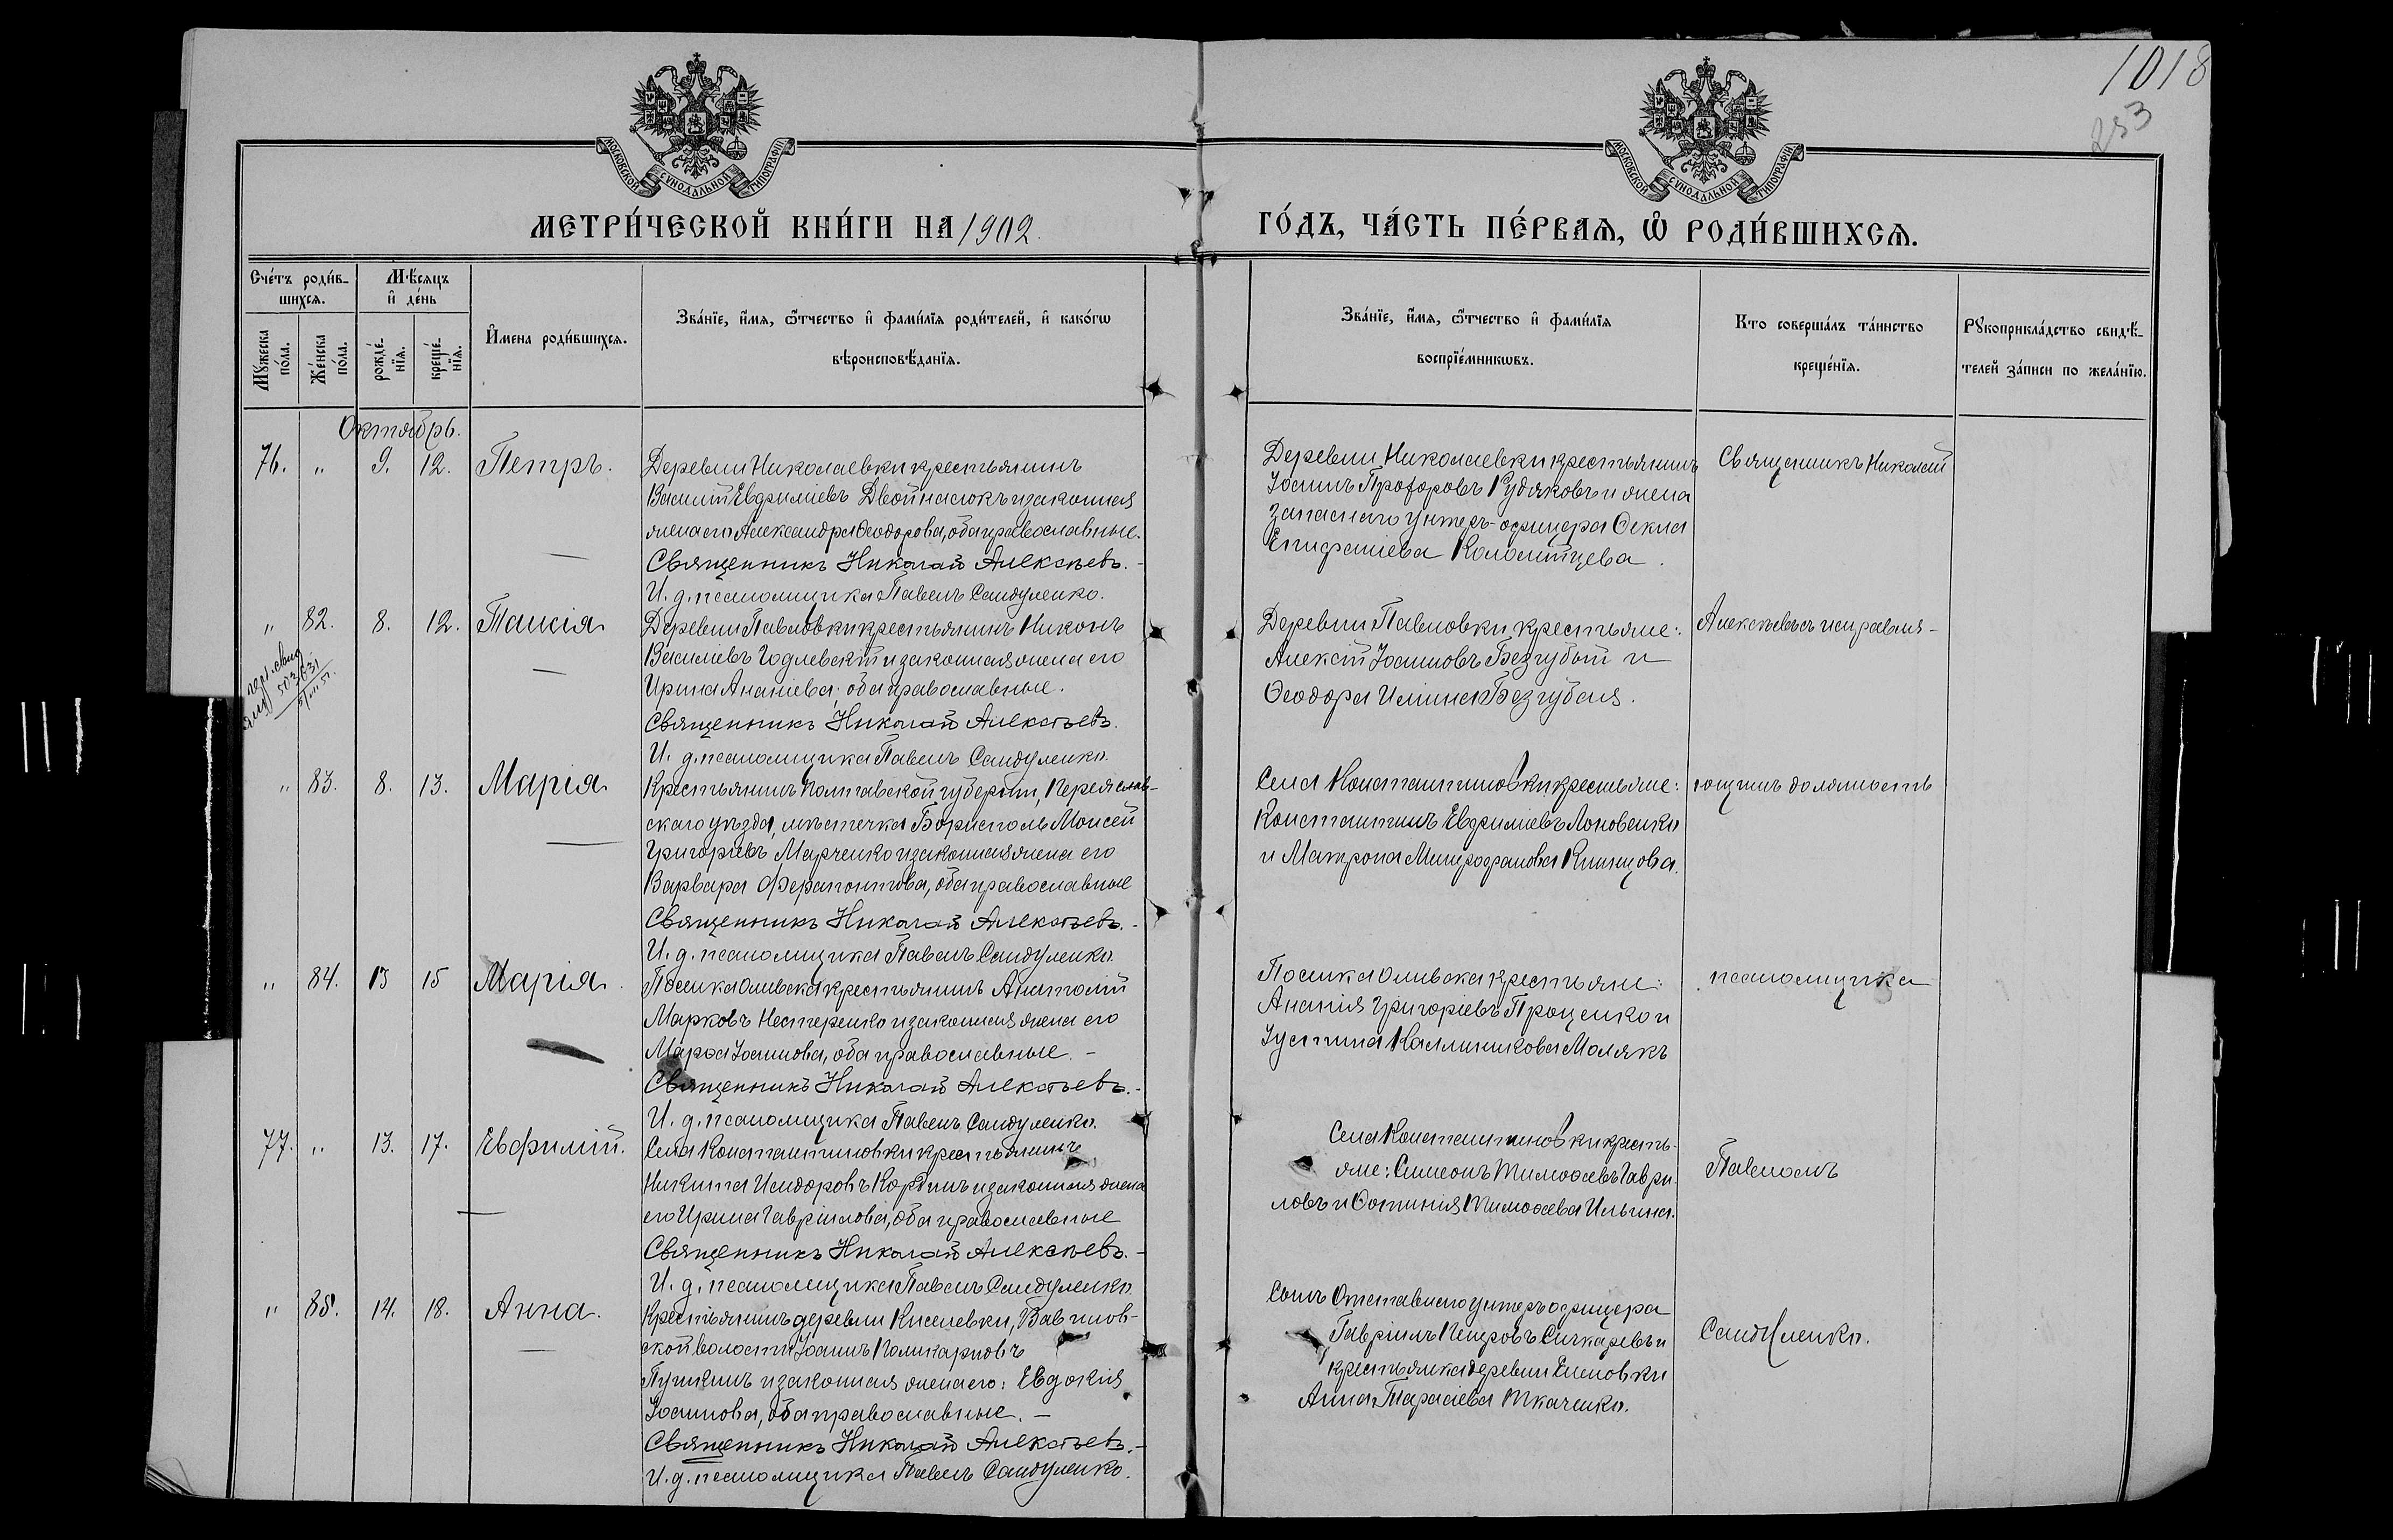 1018
253
МОСКОВСКОЙ СУНОДАЛЬНОЙ ТИПОГРАФІИ
МОСКОВСКОЙ СУНОДАЛЬНОЙ ТИПОГРАФІИ
МЕТРИ́ЧЕСКОЙ КНИ́ГИ НА 1902.
ГО́ДЪ, ЧА́СТЬ ПЕ́РВАѦ, Ѡ҆ РОДИ́ВШИХСѦ.
Сче́тъ роди́в-
шихсѧ.
Мѣ́сѧцъ
и҆ де́нь
Мꙋ́жеска по́ла.
Же́нска по́ла.
рожде́-
нїѧ.
креще́-
нїѧ.
И҆мена роди́вшихсѧ.
Зва́нїе, и҆́мѧ, ѻ҆́тчество и҆ фами́лїѧ роди́телей, и҆ како́гѡ
вѣроисповѣ́данїѧ.
Зва́нїе, и҆́мѧ, ѻ҆́тчество и҆ фами́лїѧ
воспрїе́мникѡвъ.
Кто соверша́лъ та́инство
креще́нїѧ.
Рꙋкоприкла́дство свидѣ́-
телей за́писи по жела́нїю.
Октябрь.
76. " 9. 12. Петръ.
Деревни Николаевки крестьянинъ
Василій Евфиміевъ Двойнасюкъ и законная
жена его Александра Ѳеодорова, оба православные.
Священникъ Николай Алексѣевъ. -
И. д. псаломщика Павелъ Сандуленко.
Деревни Николаевки крестьянинъ
Іоаннъ Прохоровъ Рудяковъ и жена
запаснаго унтеръ-офицера Ѳекла
Епифаніева Коломійцева.
Священникъ Николай
" 82. 8. 12. Таисія
Деревни Павловки крестьянинъ Никонъ
Васильевъ Годлевскій и законная жена его
Ирина Ананіева; оба православные.
Священникъ Николай Алексѣевъ.
И. д. псаломщика Павелъ Сандуленко.
Деревни Павловки крестьяне:
Алексій Іоанновъ Беззубый и
Ѳеодора Ильина Беззубая.
Алексѣевъ съ исправля-
" 83. 8. 13. Марія
Крестьянинъ Полтавской губерніи, Переяслав-
скаго уѣзда, мѣстечка Борисполь Моисей
Григорьевъ Марченко и законная жена его
Варвара Ферапонтова, оба православные
Священникъ Николай Алексѣевъ. -
И. д. псаломщика Павелъ Сандуленко
Села Константиновки крестьяне:
Константинъ Евфиміевъ Лоновенко
и Матрона Митрофанова Климцова.
ющимъ должность
" 84. 13 15 Марія.
Поселка Ольвска крестьянинъ Анатолій
Марковъ Нестеренко и законная жена его
Марѳа Іоаннова, оба православные. -
Священникъ Николай Алексѣевъ. -
И. д. псаломщика Павелъ Сандуленко.
Поселка Ольвска крестьяне:
Ананія Григорьевъ Проценко и
Іустина Каллиникова Молякъ
псаломщика
77. " 13. 17. Евфимій.
Села Константиновки крестьянинъ
Никита Исидоровъ Кордикъ и законная жена
его Ирина Гавріилова, оба православные
Священникъ Николай Алексѣевъ. -
И. д. псаломщика Павелъ Сандуленко.
Села Константиновки кресть-
яне: Симеонъ Тимоѳеевъ Гаври-
ловъ и Фотинія Тимоѳеева Ильина.
Павломъ
" 85. 14. 18. Анна.
Крестьянинъ деревни Киселевки, Вавилов-
ской волости Іоаннъ Поликарповъ
Пушкинъ и законная жена его: Евдокія
Іоаннова, оба православные. -
Священникъ Николай Алексѣевъ. -
И. д. псаломщика Павелъ Сандуленко.
Сынъ Отставнаго унтеръ офицера
Гавріилъ Петровъ Сичкаревъ и
крестьянка деревни Еленовки
Анна Тарасіева Ткаченко.
Сандуленко.